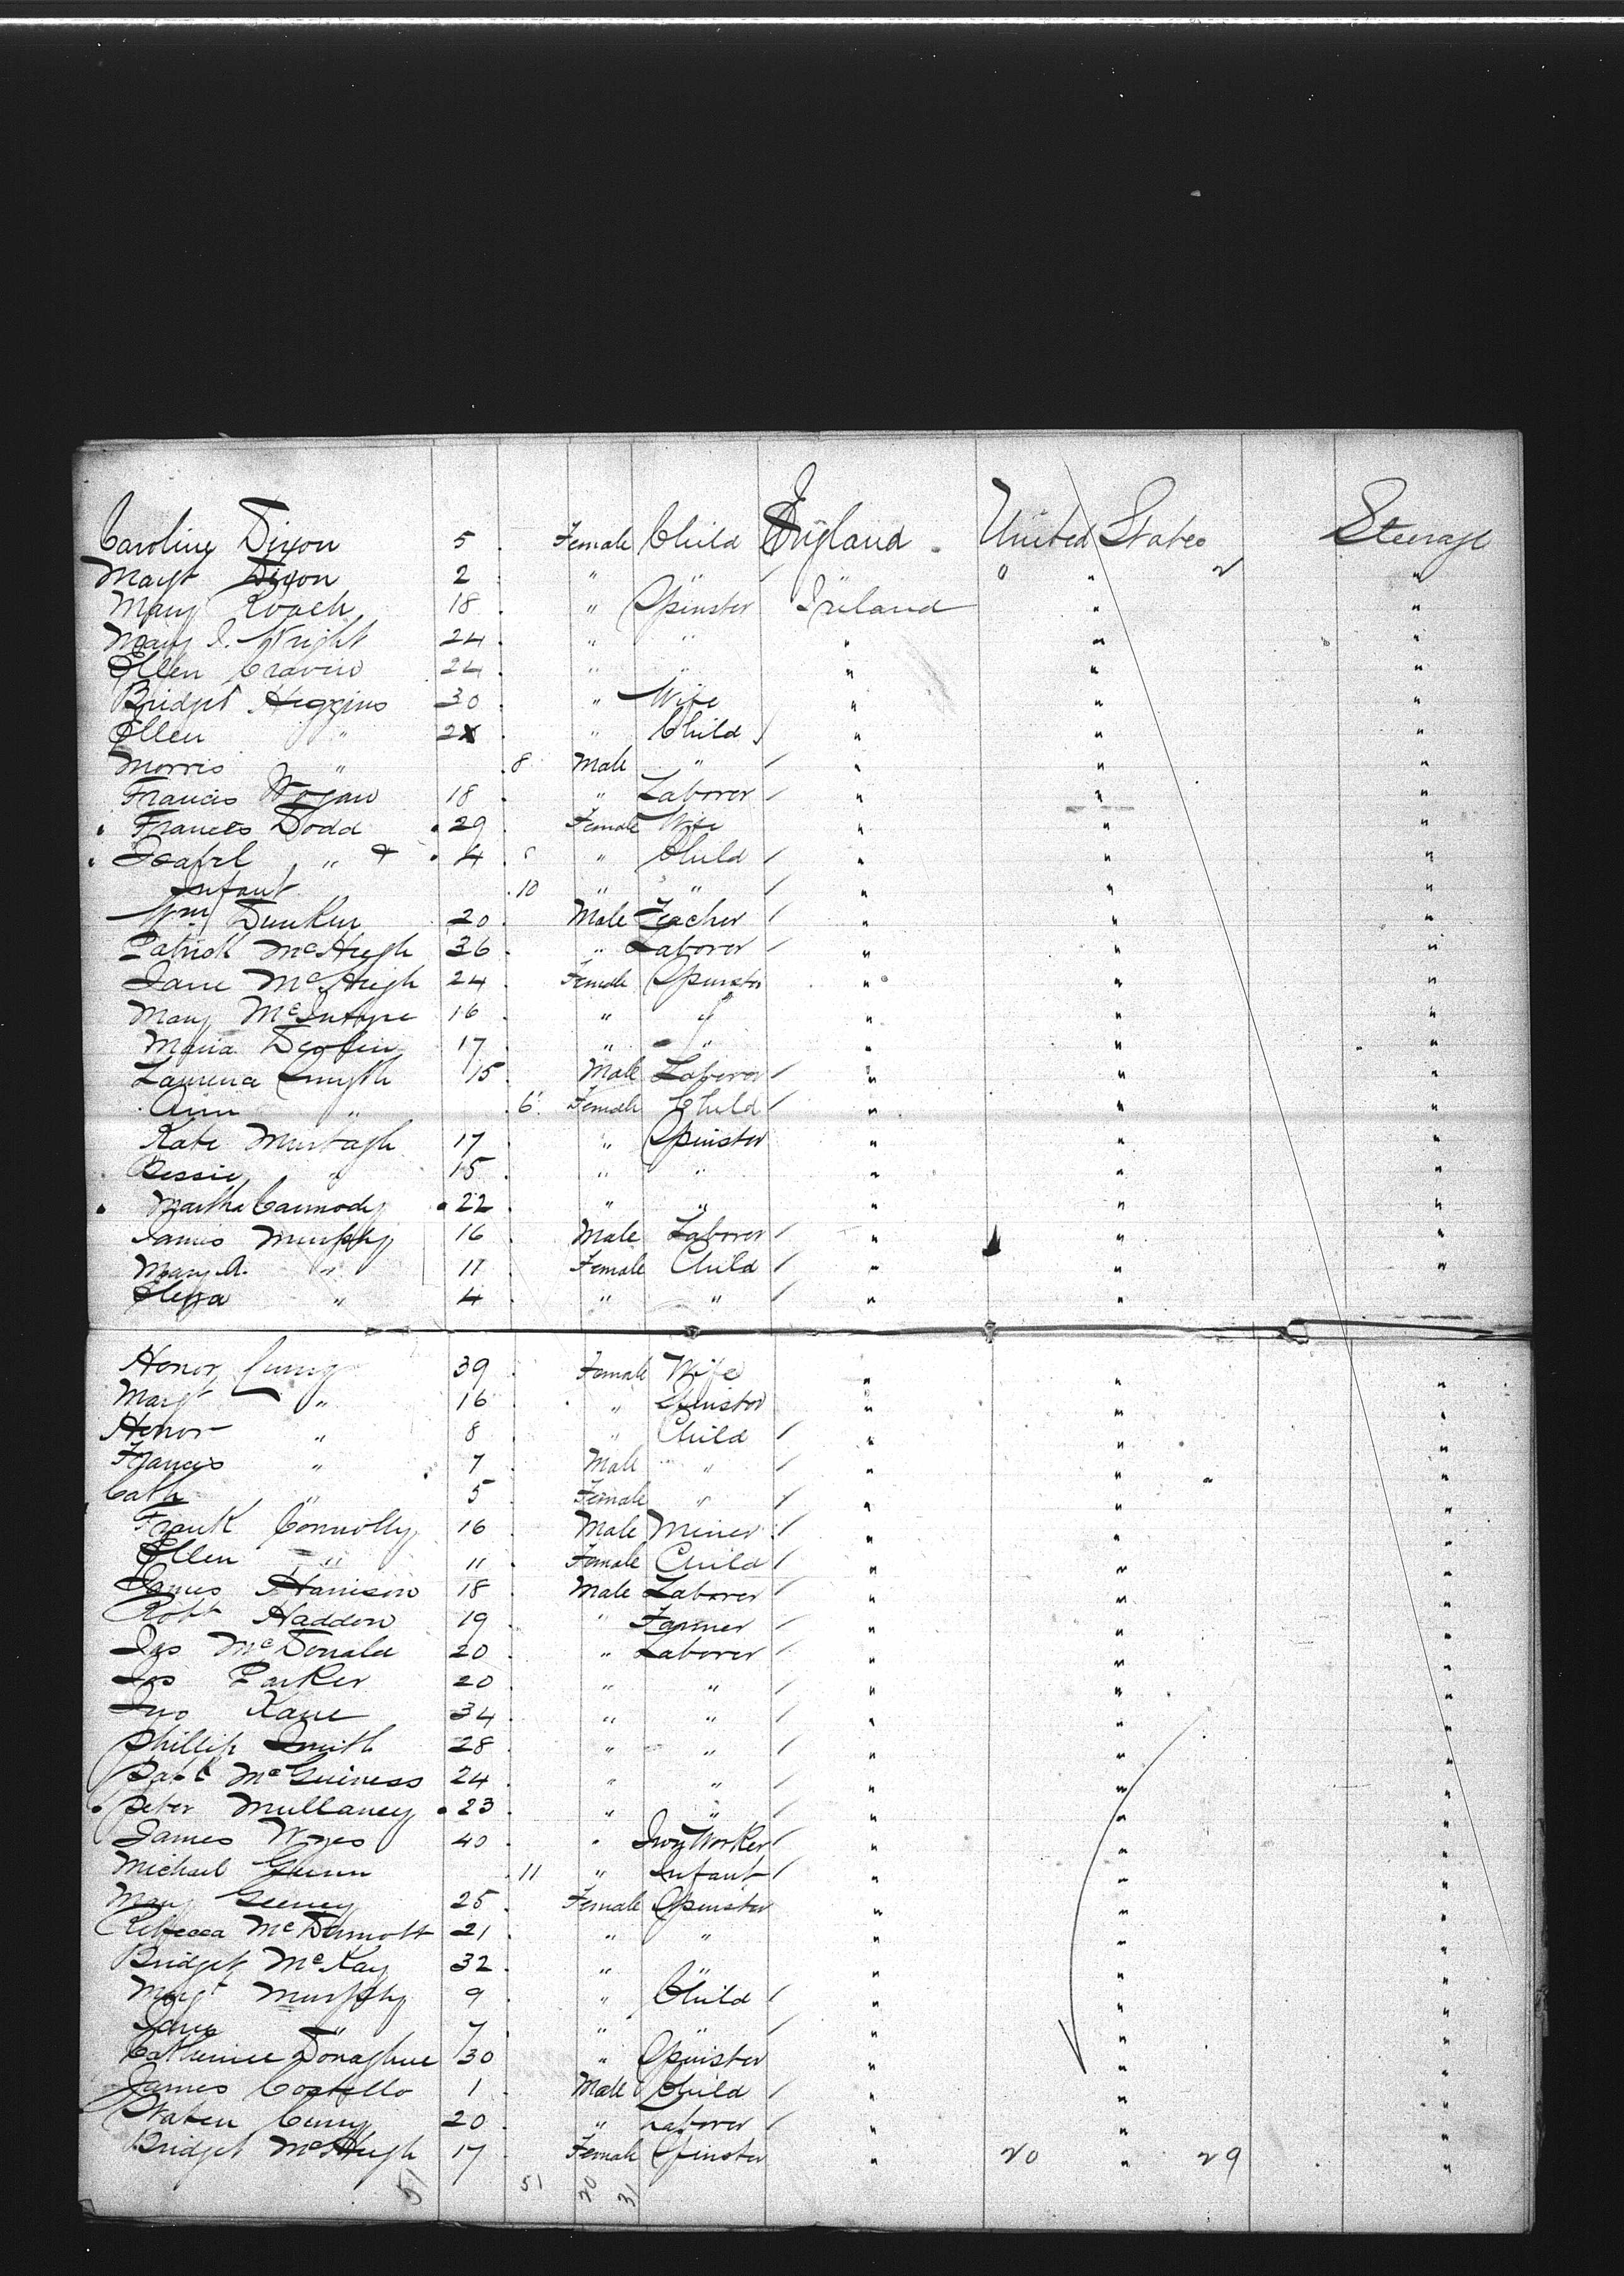 Caroline Dixon 5 Female Child England United States Steerage
Margt Dixon 2 " " " " "
Mary Roach 18 " Spinster Ireland " "
Mary J. Wright 24 " " " " "
Ellen 24 " " " " "
Bridget Higgins 30 " Wife " " "
Ellen " 2 " Child " " "
Morris " 8 Male " " " "
Francis Wogan 18 " Laborer " " "
Frances Dodd 29 Female Wife " " "
Isabel " & 4 " Child " " "
Infant 10 " " " " "
Wm 20 Male Teacher " " "
Patrick McHugh 36 " Laborer " " "
Jane McHugh 24 Female Spinster " " "
Mary McIntyre 16 " " " " "
Maria 17 " " " " "
Laurence Smyth 15 Male Laborer " " "
Ann " 6 Female Child " " "
Kate Murtagh 17 " Spinster " " "
Bessie " 15 " " " " "
Martha Carmody 22 " " " " "
James Murphy 16 Male Laborer " " "
Mary A. " 11 Female Child " " "
Eliza " 4 " " " "
Honor 39 Female Wife " " "
Margt " 16 " Spinster " " "
Honor " 8 " Child " " "
Francis " 7 Male " " " "
Cath " 5 Female " " " "
Frank Connolly 16 Male Miner " " "
Ellen " 11 Female Child " " "
James Harrison 18 Male Laborer " " "
Robt Haddon 19 " Farmer " " "
Jas McDonald 20 " Laborer " " "
Jas Parker 20 " " " " "
Jno Kane 34 " " " " "
Phillip Smith 28 " " " " "
Patk McGuiness 24 " " " " "
Peter Mullaney 23 " " " " "
James 40 " Worker " " "
Michael 11 " Infant " " "
Mary 25 Female Spinster " " "
Rebecca McDermott 21 " " " " "
Bridget McKay 32 " " " " "
Margt Murphy 9 " Child " " "
Jane " 7 " " " " "
Catherine Donaghue 30 " Spinster " " "
James Costello 1 Male Child " " "
20 " Laborer " " "
Bridget McHugh 17 Female Spinster " 20 " 29 "
51 51 20 31